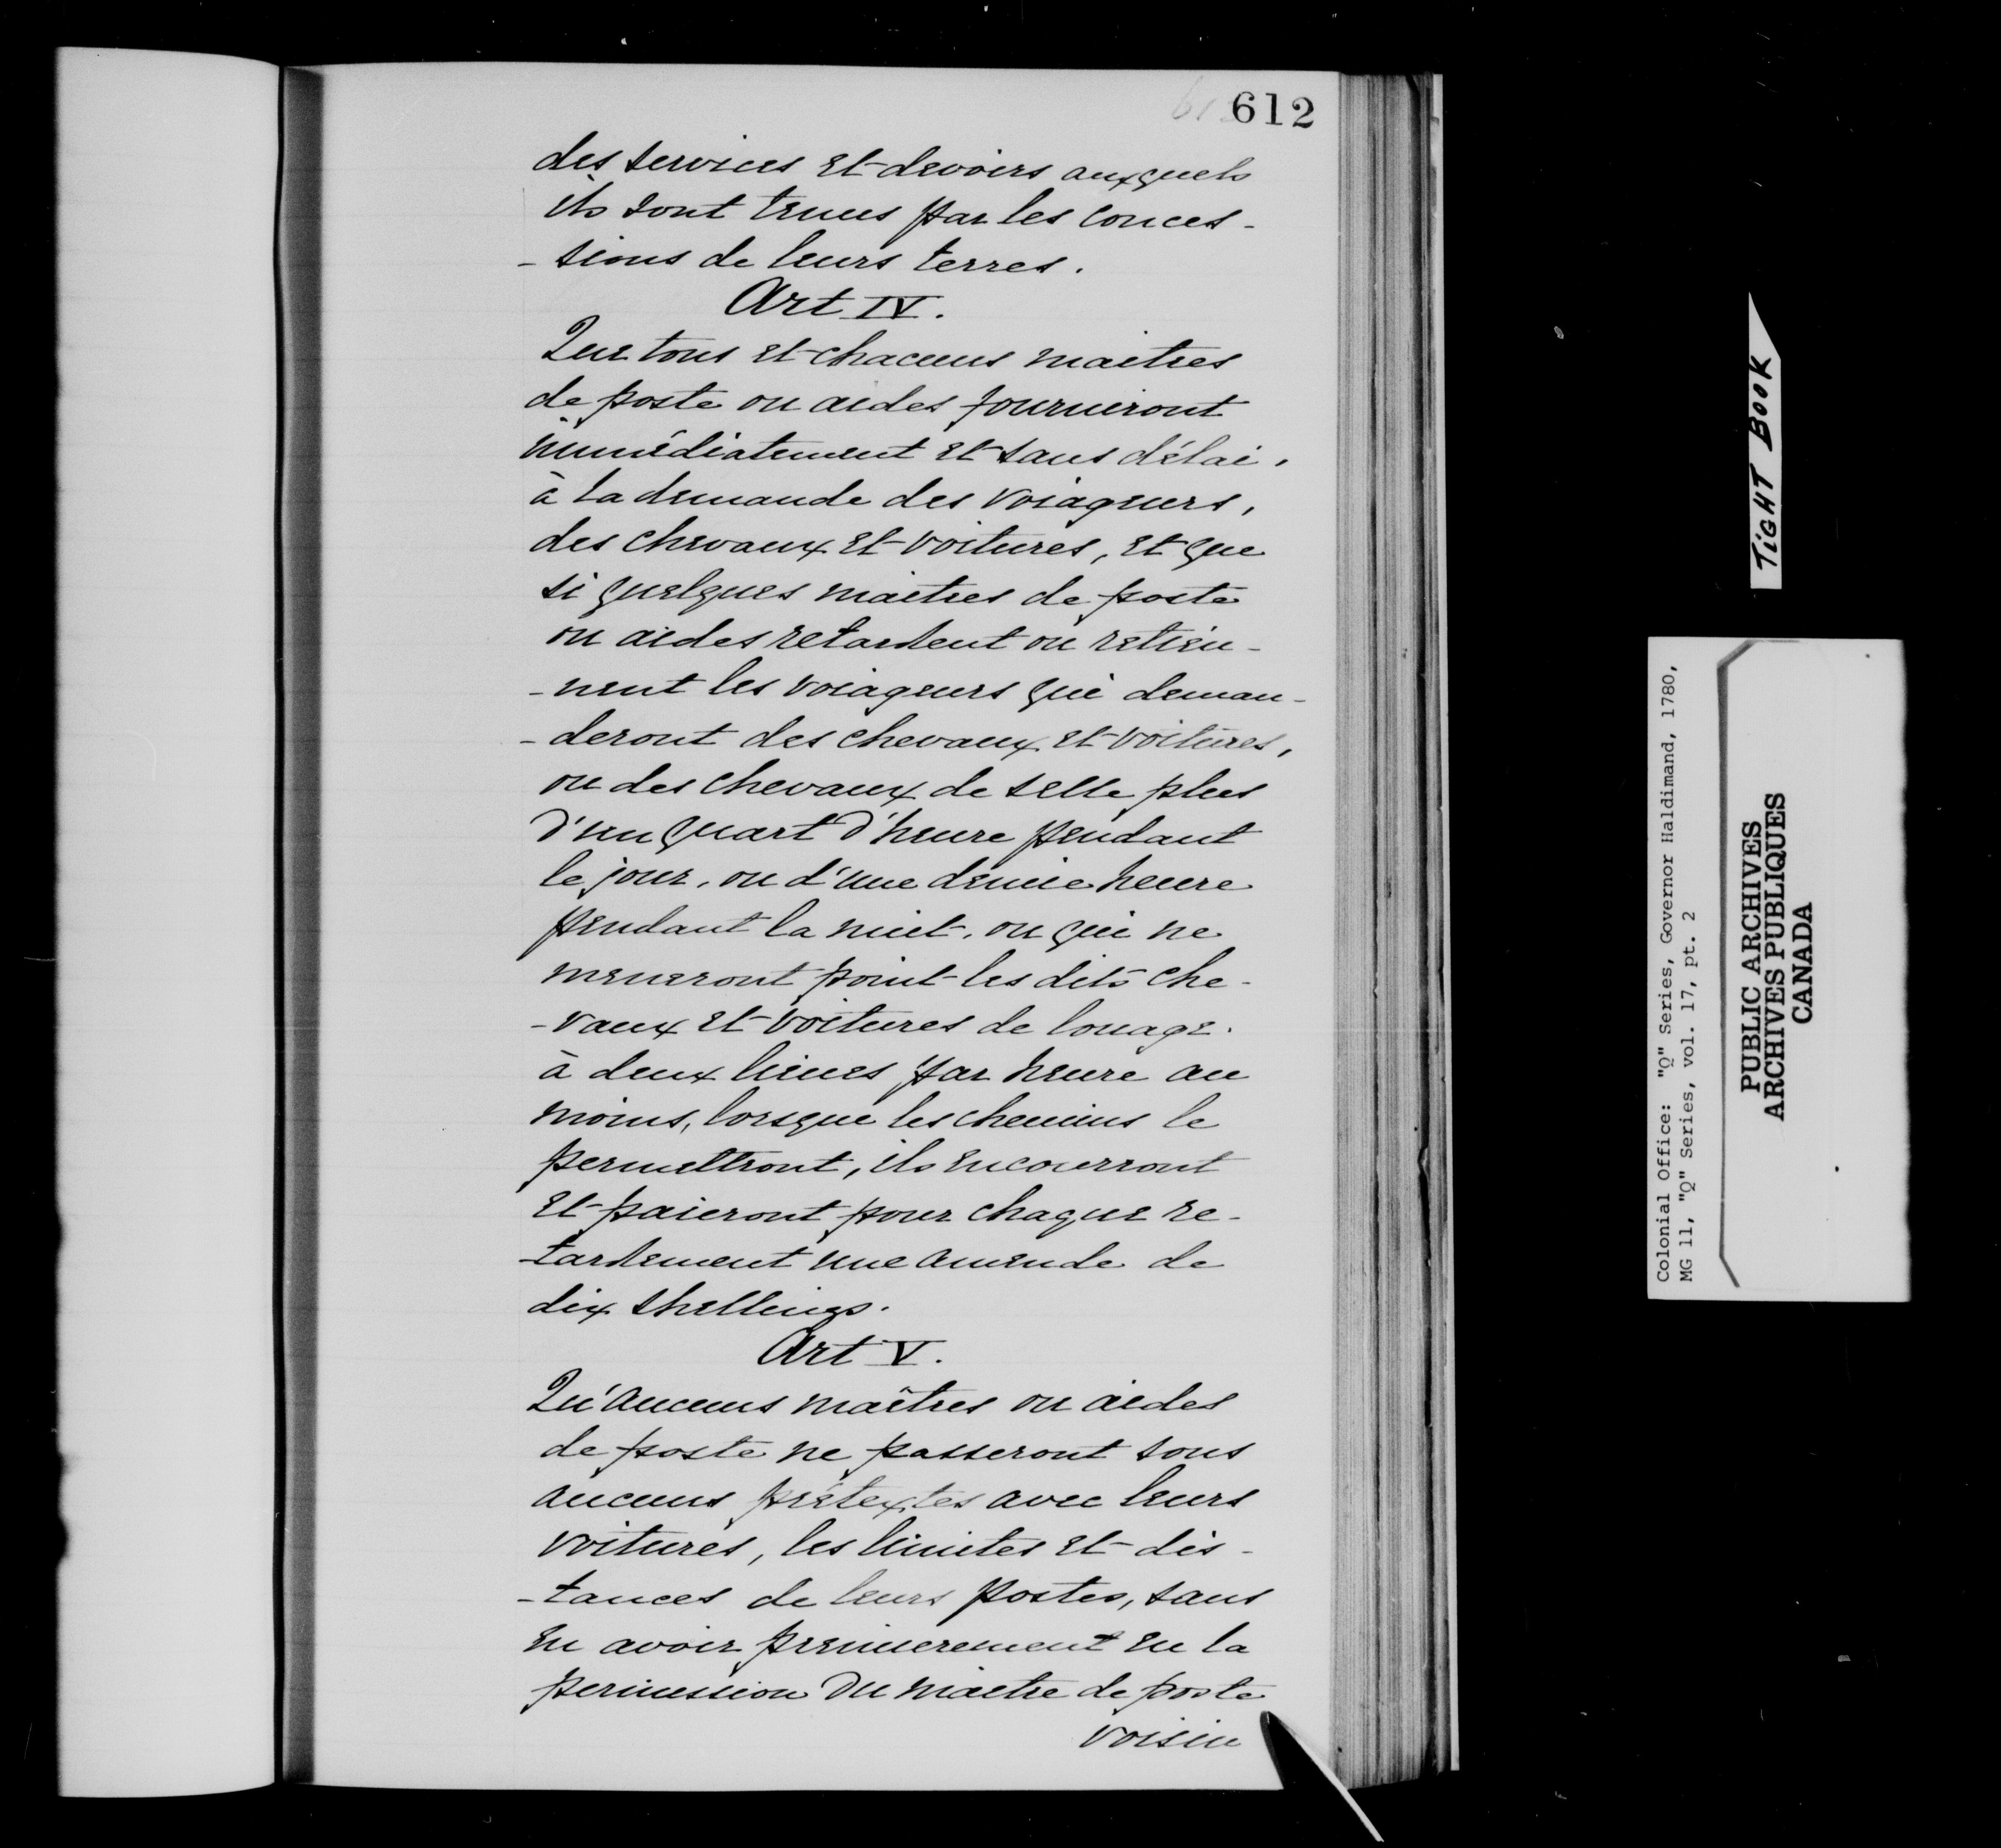 612
des services et devoirs auxquels
ils sont tenus par les conces-
-sions de leurs terres.
Art IV.
Que tous et chacuns maitres
de poste ou aides fourniront
immédiatement et sans délai,
à la demande des voiageurs,
des chevaux et voitures, et que
si quelques maitres de poste
ou aides retardent ou retien-
-nent les voiageurs qui deman-
-deront des chevaux et voitures,
ou des chevaux de selle plus
d'un quart d'heure pendant
le jour, ou d'une demie heure
pendant la nuit, ou qui ne
meneront point les dits che-
-vaux et voitures de louage.
à deux lieues par heure au
moins, lorsque les chemins le
permettront, ils encourront
et paieront pour chaque re-
-tardement une amende de
dix shellings.
Art V.
Qu'aucuns maîtres ou aides
de poste ne passeront sous
aucuns prétextes avec leurs
voitures, les limites et dis-
-tances de leurs postes, sans
en avoir premierement eu la
permission du maitre de poste
voisin
TIGHT BOOK
Colonial Office: "Q" Series, Governor Haldimand, 1780,
MG 11, "Q" Series, vol. 17, pt. 2
PUBLIC ARCHIVES
ARCHIVES PUBLIQUES
CANADA